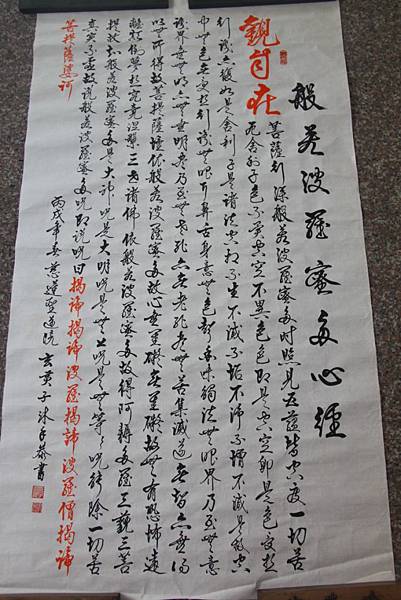 般若波羅蜜多心經
觀自在
菩薩行深般若波羅蜜多時照見五蘊皆空度一切苦
厄舍利子色不異空空不異色色即是空空即是色受想
行識亦復如是舍利子是諸法空相不生不滅不垢不淨不增不減是故空
中無色無受想行識無眼耳鼻舌身意無色聲香味觸法無眼界乃至無意
識界無無明亦無無明盡乃至無老死亦無老死盡無苦集滅道無智亦無得
以無所得故菩提薩埵依般若波羅蜜多故心無罣礙無罣礙故無有恐怖遠
離顛倒夢想究竟涅槃三世諸佛依般若波羅蜜多故得阿耨多羅三藐三菩
提故知般若波羅蜜多是大神咒是大明咒是無上咒是無等等咒能除一切苦
真實不虛故說般若波羅蜜多咒即說咒曰揭諦揭諦波羅揭諦波羅僧揭諦
菩提薩婆訶
丙戌年春慈蓮聖道院玄黃子沐手恭書